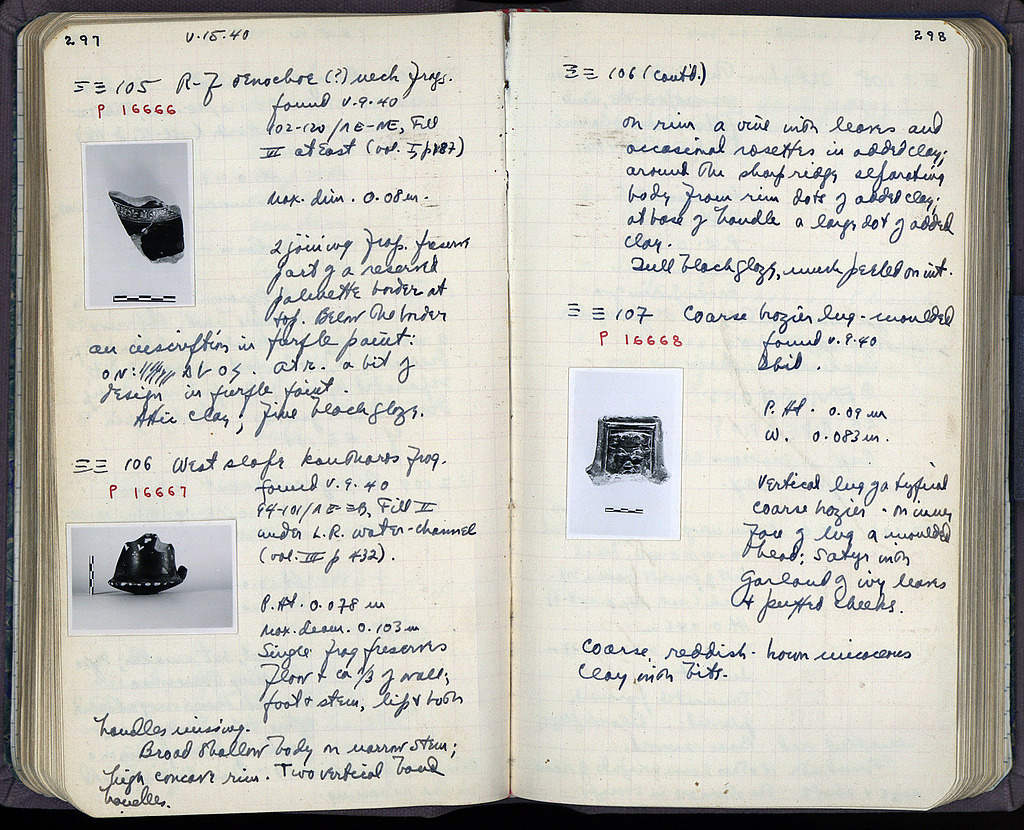 297
V.15.40
ΞΞ 105 R-F oenochoe (?) neck frags.
P 16666
found V.9.40
102-120/ΛE-NE, Fill
III at East (vol. I, p 187)
Max. dim. 0.08 m.
2 joining frags. preserve
part of a reserved
palmette border at
top. Below the border
an inscription in purple paint:
At r. a bit of
design in purple paint.
Attic clay; fine black glaze.
ΞΞ 106 West slope kantharos frag.
P 16667
found V.9.40
94-101/ΛE-ΞB, Fill II
under L.R. water-channel
(vol. III p 432).
P. Ht. 0.078 m
Max. diam. 0.103 m
Single frag preserves
floor + ca 1/3 of wall;
foot & stem, lip & both
handles missing.
Broad shallow body on narrow stem;
high concave rim. Two vertical band
handles.
298
ΞΞ 106 (cont'd.)
on rim a vine with leaves and
occasional rosettes in added clay;
around the sharp ridge separating
body from rim dots of added clay;
at base of handle a large dot of added
clay.
Dull black glaze, much peeled on int.
ΞΞ 107 Coarse brazier lug - moulded
P 16668
found V.9.40
Ibid.
P. Ht. 0.09 m
W. 0.083 m.
Vertical lug of a typical
coarse brazier - on inner
face of lug a moulded
head; Satyr with
Garland of ivy leaves
+ puffed cheeks.
Coarse, reddish-brown micaceous
clay with bits.